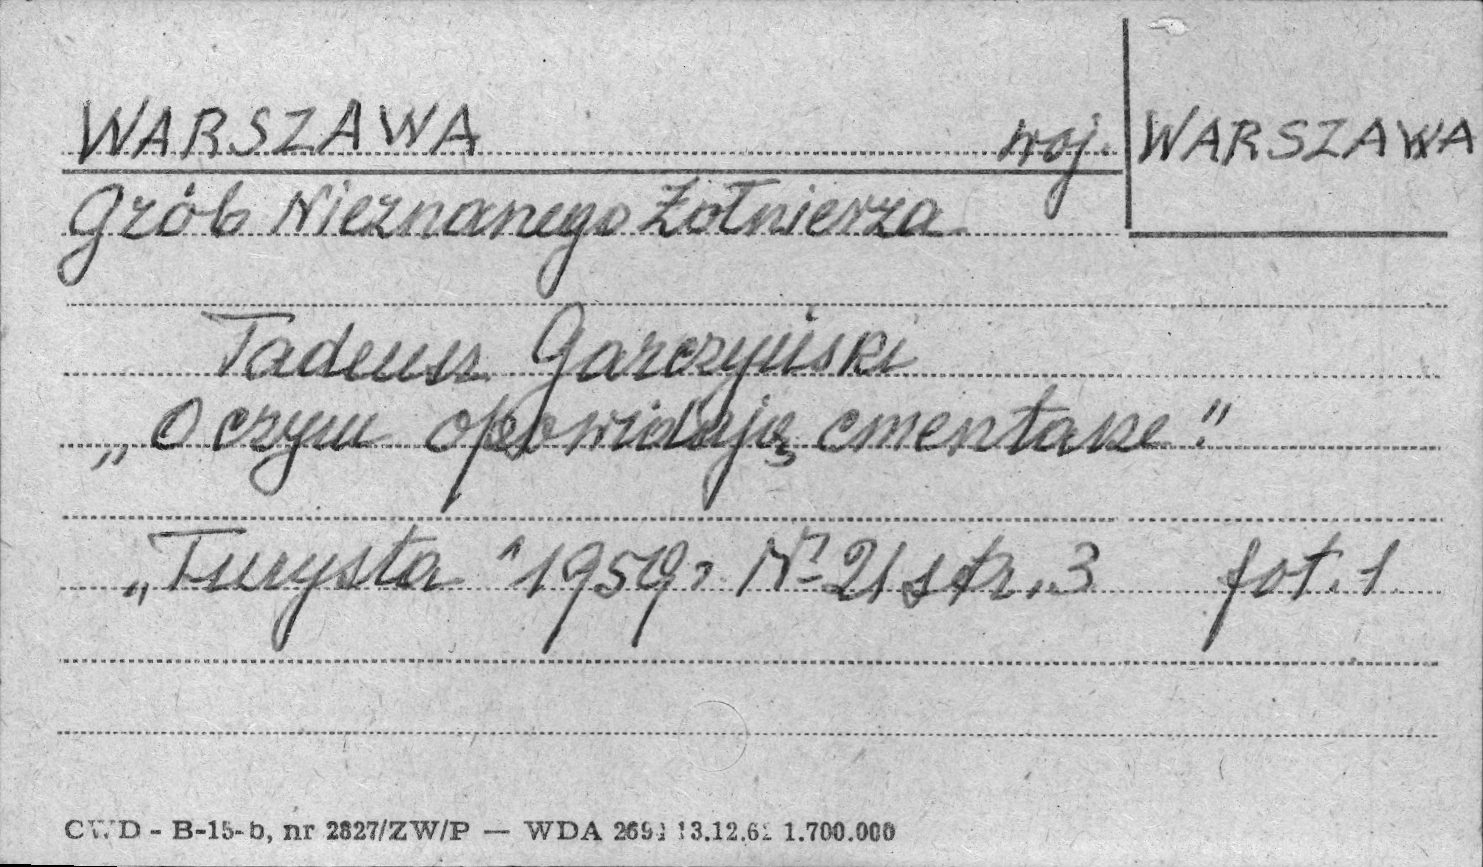 WARSZAWA woj. WARSZAWA
Grób Nieznanego Żołnierza
Tadeusz Garczyński
„O czym opowiadają cmentarze"
„Turysta" 1959r Nr 21 str. 3 fot. 1
CWD - B-15-b, nr 2827/ZW/P — WDA 13.12.62 1.700.000